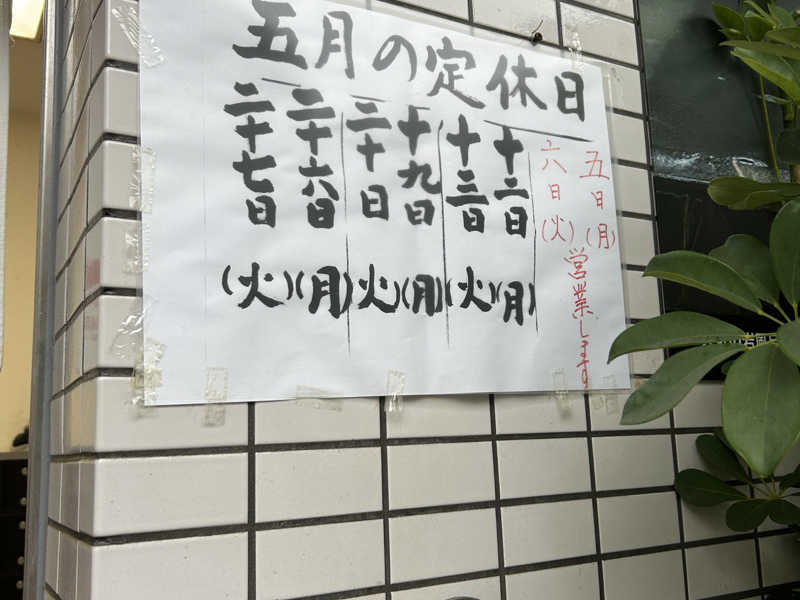 五月の定休日
五日(月)
六日(火)
営業します
十二日(月)
十三日(火)
十九日(月)
二十日(火)
二十六日(月)
二十七日(火)